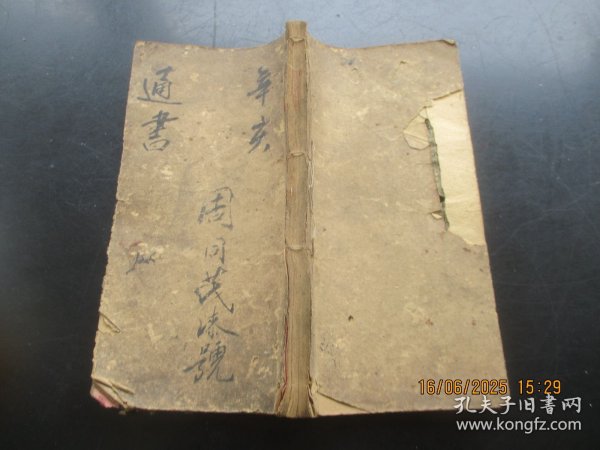 辛亥
通書
周同茂漆號
16/06/2025 15:29
孔夫子旧書网
www.kongfz.com